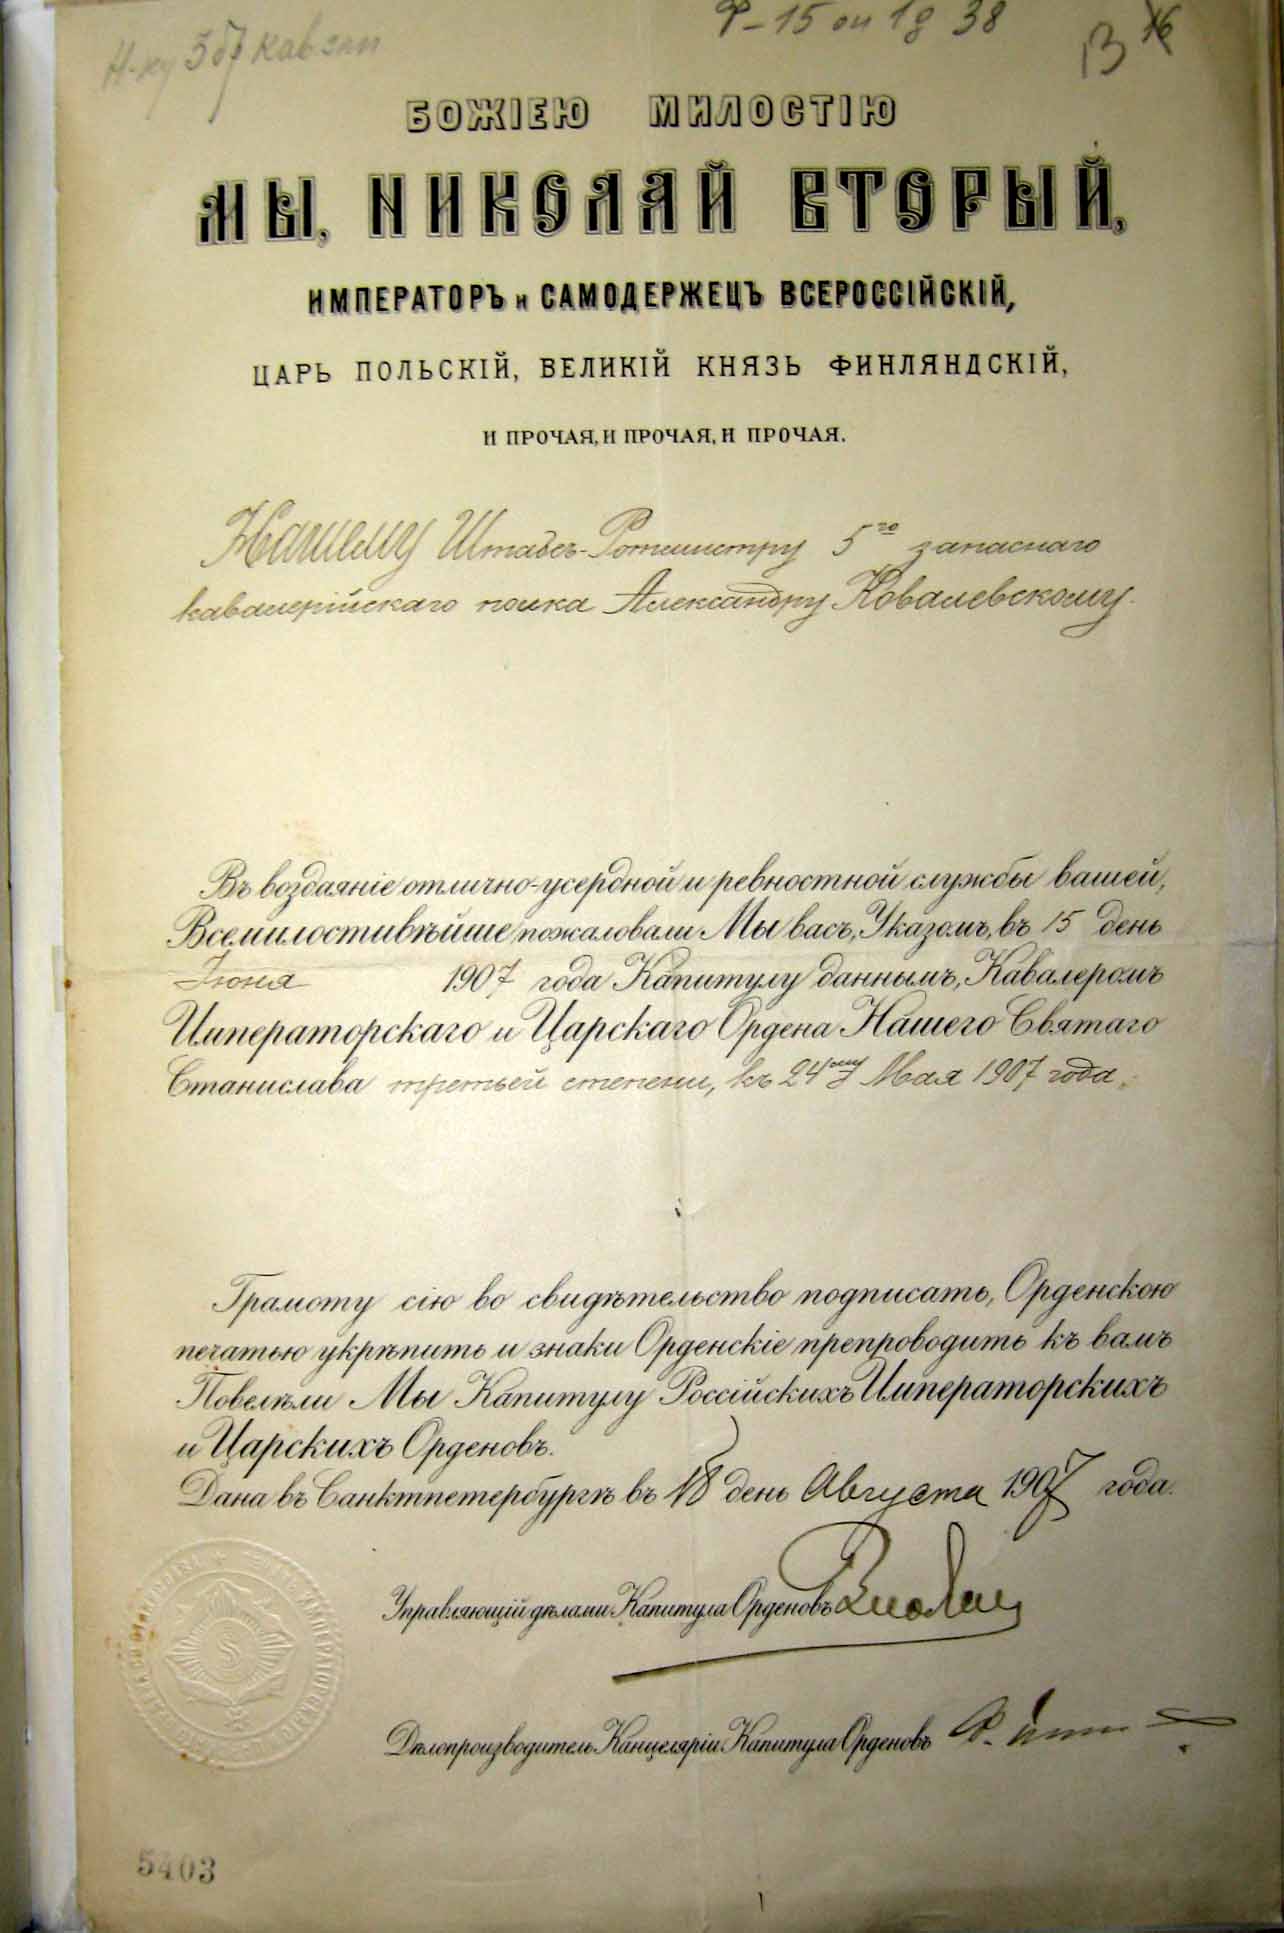 Н-ку 5 бр кав зап
Ф-15 оп 1д 38
13
БОЖІЕЮ МИЛОСТІЮ
МЫ, НИКОЛАЙ ВТОРЫЙ,
ИМПЕРАТОРЪ и САМОДЕРЖЕЦЪ ВСЕРОССІЙСКІЙ,
ЦАРЬ ПОЛЬСКІЙ, ВЕЛИКІЙ КНЯЗЬ ФИНЛЯНДСКІЙ,
И ПРОЧАЯ, И ПРОЧАЯ, И ПРОЧАЯ.
Нашему Штабсъ-Ротмистру 5го запаснаго
кавалерійскаго полка Александру Ковалевскому.
Въ воздаяніе отлично-усердной и ревностной службы вашей,
Всемилостивѣйше пожаловали Мы васъ, Указомъ, въ 15 день
Іюня 1907 года Капитулу даннымъ, Кавалеромъ
Императорскаго и Царскаго Ордена Нашего Святаго
Станислава третьей степени, къ 24му Мая 1907 года.
Грамоту сію во свидѣтельство подписать, Орденскою
печатью укрѣпить и знаки Орденскіе препроводить къ вамъ
Повелѣли Мы Капитулу Россійскихъ Императорскихъ
и Царскихъ Орденовъ.
Дана въ Санктпетербургѣ въ 18 день Августа 1907 года.
Управляющій дѣлами Капитула Орденовъ
Дѣлопроизводитель Канцеляріи Капитула Орденовъ
5403